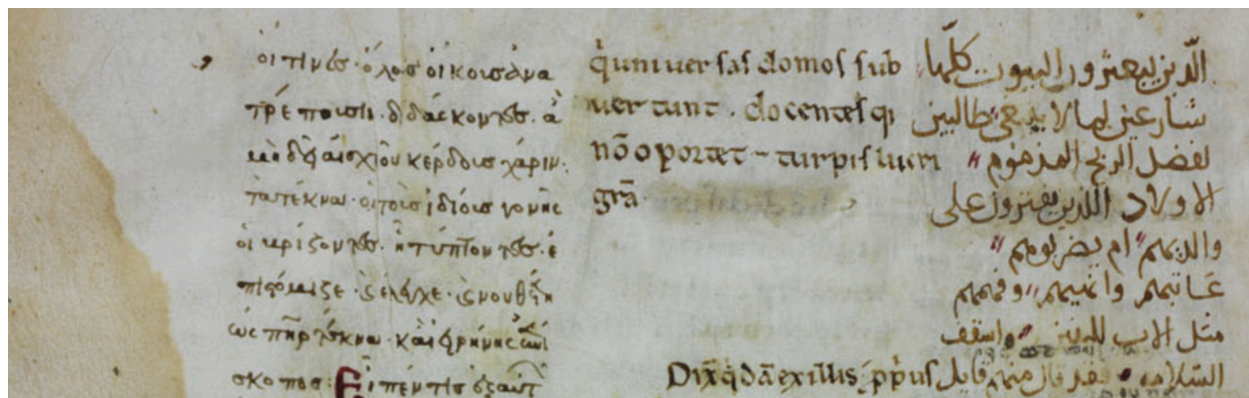 οἵτινες ὅλους οἴκους ἀνα
τρέπουσι· διδάσκοντες· ἃ
κέρδους χάριν·
τὰ τέκνα· οἱ τοῖς ἰδίοις γονεῖς
οἱ ὑβρίζοντες· ἢ τύπτοντες· ἐ
πιστόμιζε· ἔλεγχε·
ὡς πηρ τέκνα· καὶ εἰρήνης ἐπί
σκοπος· Εἶπέν τις ἐξ αὐτ
q uniuersas domos sub
uertunt · docentes q
nō oportet turpis lucri
grā
Dix qdā ex illis ppius
الذين يبعثرون البيوت كلها
شارعين لما لا ينبغي طالبين
لفضل الربح المذموم
الاولاد اللذين يفترون على
والديهم ام يضربوهم
عاتبهم وانهيهم وفمهم
مثل الاب للبنين واسقف
السلامه فقد قال منهم قايل